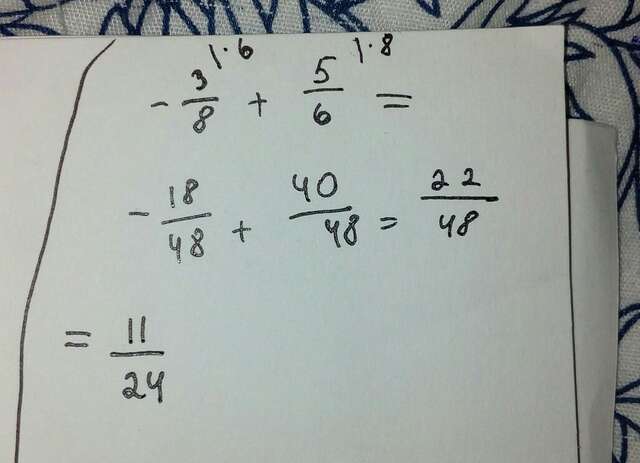 - 3/8 |·6 + 5/6 |·8 =
- 18/48 + 40/48 = 22/48
= 11/24